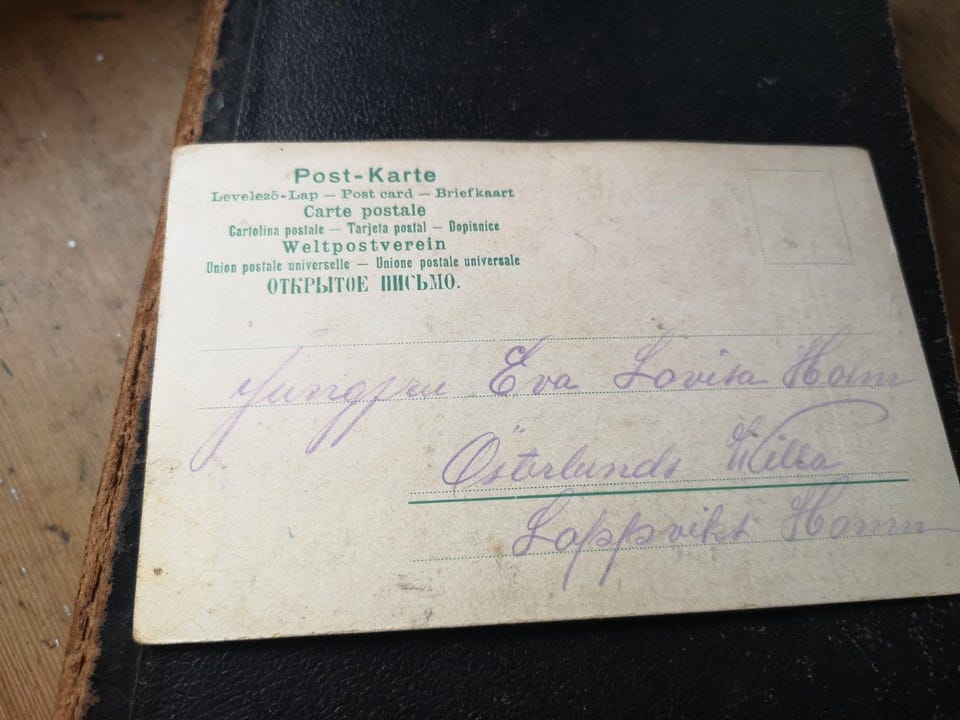 Post-Karte
Levelező-Lap — Post card — Briefkaart
Carte postale
Cartolina postale — Tarjeta postal — Dopisnice
Weltpostverein
Union postale universelle — Unione postale universale
ОТКРЫТОЕ ПИСЬМО.
Jungfru Eva Lovisa
Österlunds Willa
Lappvikt Hamn